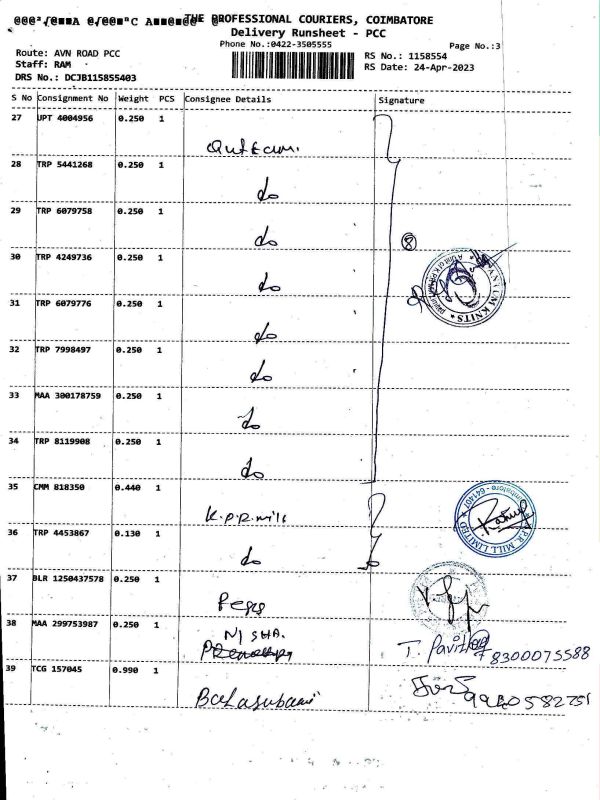 THE PROFESSIONAL COURIERS, COIMBATORE
Delivery Runsheet - PCC
Phone No.:0422-3505555
Page No.:3
Route: AVN ROAD PCC
Staff: RAM
DRS No.: DCJB115855403
RS No.: 1158554
RS Date: 24-Apr-2023
S No Consignment No Weight PCS Consignee Details Signature
27 UPT 4004956 0.250 1
28 TRP 5441268 0.250 1 do
29 TRP 6079758 0.250 1 do
8
30 TRP 4249736 0.250 1 do
KNITS
31 TRP 6079776 0.250 1 do
32 TRP 7998497 0.250 1 do
33 MAA 300178759 0.250 1 do
34 TRP 8119908 0.250 1 do
35 CMM 818350 0.440 1 K.P.R. mill
P.R. MILL LIMITED
641407
36 TRP 4453867 0.130 1 do
37 BLR 1250437578 0.250 1
38 MAA 299753987 0.250 1 NISHA.
T. 8300075588
39 TCG 157045 0.990 1